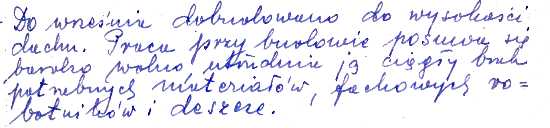 Do września dobudowano do wysokości
dachu. Praca przy budowie posuwa się
bardzo wolno utrudnia ją ciągły brak
potrzebnych materiałów, fachowych ro=
botników i deszcze.